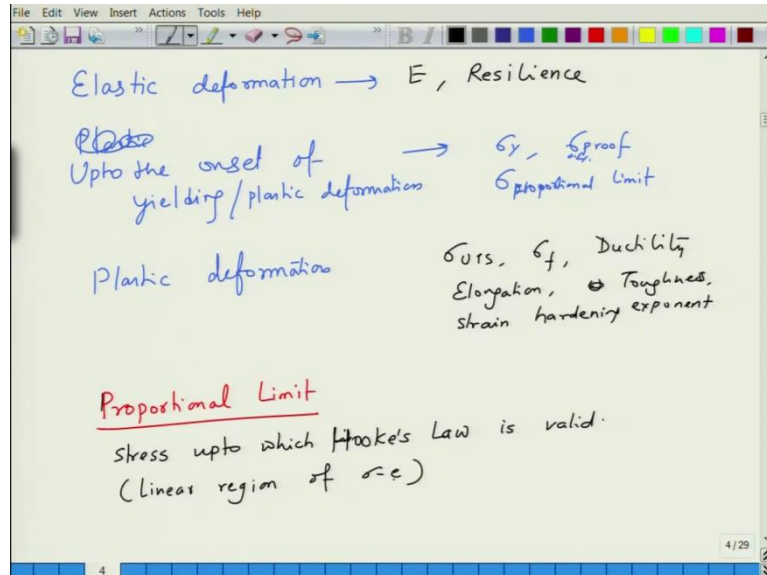 File Edit View Insert Actions Tools Help
B I
Elastic deformation → E, Resilience
Upto the onset of → σy, σproof
yielding/plastic deformation σproportional limit
Plastic deformation σUTS, σf, Ductility
Elongation, Toughness,
strain hardening exponent
Proportional Limit
Stress upto which Hooke's Law is valid.
(linear region of σ-e)
4/29
4